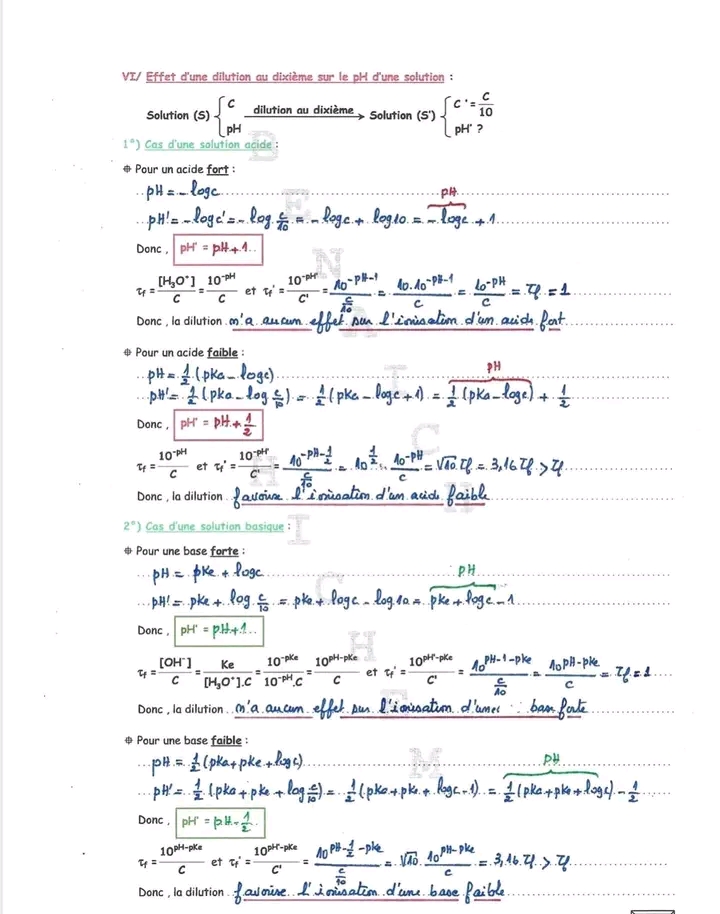 VI/ Effet d'une dilution au dixième sur le pH d'une solution :
Solution (S) { C pH dilution au dixième → Solution (S') { C' = C/10 pH' ?
1°) Cas d'une solution acide :
⌖ Pour un acide fort :
pH = - logC
pH' = - logC' = - log C/10 = - logC + log10 = - logC + 1 pH
Donc , pH' = pH + 1
τf = [H₃O⁺]/C = 10^-pH/C et τf' = 10^-pH'/C' = 10^-pH-1/(C/10) = 10.10^-pH-1/C = 10^-pH/C = τf = 1
Donc , la dilution n'a aucun effet sur l'ionisation d'un acide fort
⌖ Pour un acide faible :
pH = 1/2 (pKa - logC)
pH' = 1/2 (pKa - log C/10) = 1/2 (pKa - logC + 1) = 1/2 (pKa - logC) + 1/2 pH
Donc , pH' = pH + 1/2
τf = 10^-pH/C et τf' = 10^-pH'/C' = 10^-pH-1/2/(C/10) = 10^1/2 . 10^-pH/C = √10 τf = 3,16 τf > τf
Donc , la dilution favorise l'ionisation d'un acide faible
2°) Cas d'une solution basique :
⌖ Pour une base forte :
pH = pKe + logC
pH' = pKe + log C/10 = pKe + logC - log10 = pKe + logC - 1 pH
Donc , pH' = pH + 1
τf = [OH⁻]/C = Ke/[H₃O⁺].C = 10^-pKe/10^-pH.C = 10^pH-pKe/C et τf' = 10^pH'-pKe/C' = 10^pH-1-pKe/(C/10) = 10^pH-pKe/C = τf = 1
Donc , la dilution n'a aucun effet sur l'ionisation d'une base forte
⌖ Pour une base faible :
pH = 1/2 (pKa + pKe + logC)
pH' = 1/2 (pKa + pKe + log C/10) = 1/2 (pKa + pKe + logC - 1) = 1/2 (pKa + pKe + logC) - 1/2 pH
Donc , pH' = pH - 1/2
τf = 10^pH-pKe/C et τf' = 10^pH'-pKe/C' = 10^pH-1/2-pKe/(C/10) = √10 . 10^pH-pKe/C = 3,16 τf > τf
Donc , la dilution favorise l'ionisation d'une base faible